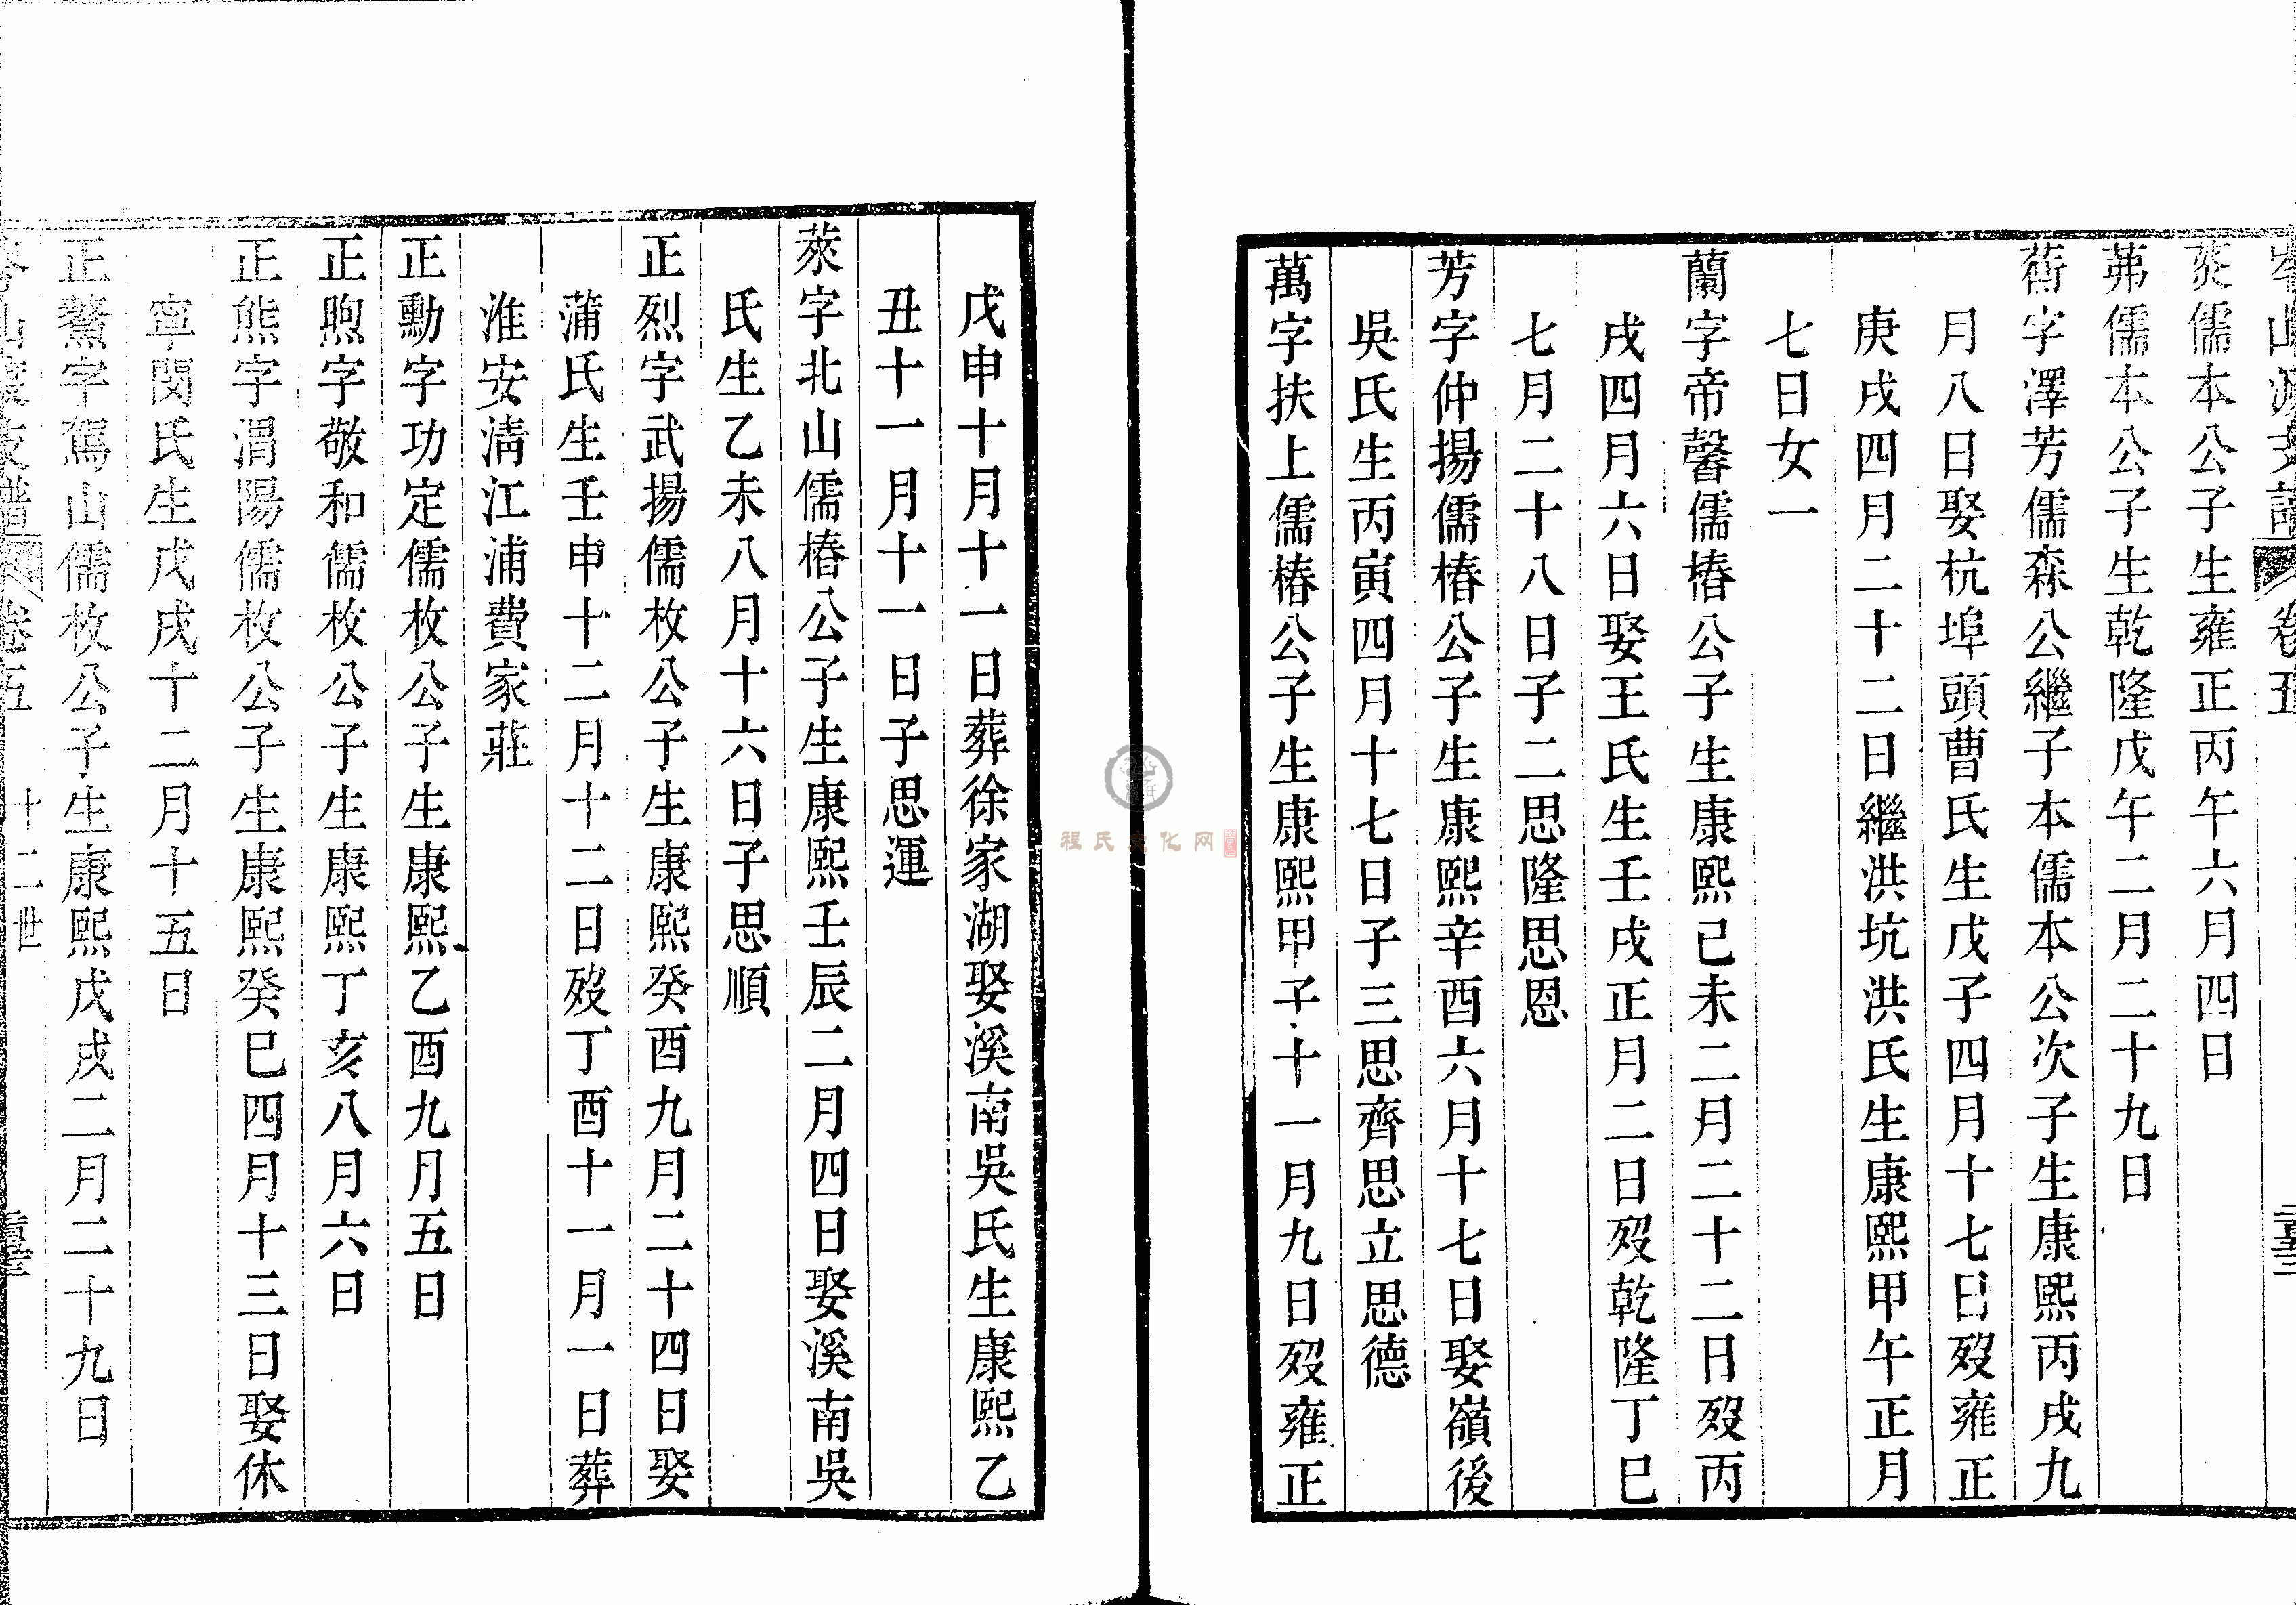 岑山渡支譜 卷五
菼儒本公子生雍正丙午六月四日
茀儒本公子生乾隆戊午二月二十九日
字澤芳儒森公繼子本儒本公次子生康熙丙戌九
月八日娶杭埠頭曹氏生戊子四月十七日歿雍正
庚戌四月二十二日繼洪坑洪氏生康熙甲午正月
七日女一
蘭字帝馨儒椿公子生康熙己未二月二十二日歿丙
戌四月六日娶王氏生壬戌正月二日歿乾隆丁巳
七月二十八日子二思隆思恩
芳字仲揚儒椿公子生康熙辛酉六月十七日娶嶺後
吳氏生丙寅四月十七日子三思齊思立思德
萬字扶上儒椿公子生康熙甲子十一月九日歿雍正
戊申十月十一日葬徐家湖娶溪南吳氏生康熙乙
丑十一月十一日子思運
萊字北山儒椿公子生康熙壬辰二月四日娶溪南吳
氏生乙未八月十六日子思順
正烈字武揚儒枚公子生康熙癸酉九月二十四日娶
蒲氏生壬申十二月十二日歿丁酉十一月一日葬
淮安清江浦費家莊
正勳字功定儒枚公子生康熙乙酉九月五日
正煦字敬和儒枚公子生康熙丁亥八月六日
正熊字渭陽儒枚公子生康熙癸巳四月十三日娶休
寧閔氏生戊戌十二月十五日
正鰲字駕山儒枚公子生康熙戊戌二月二十九日
岑山渡支譜 卷五 十二世
程氏文化网